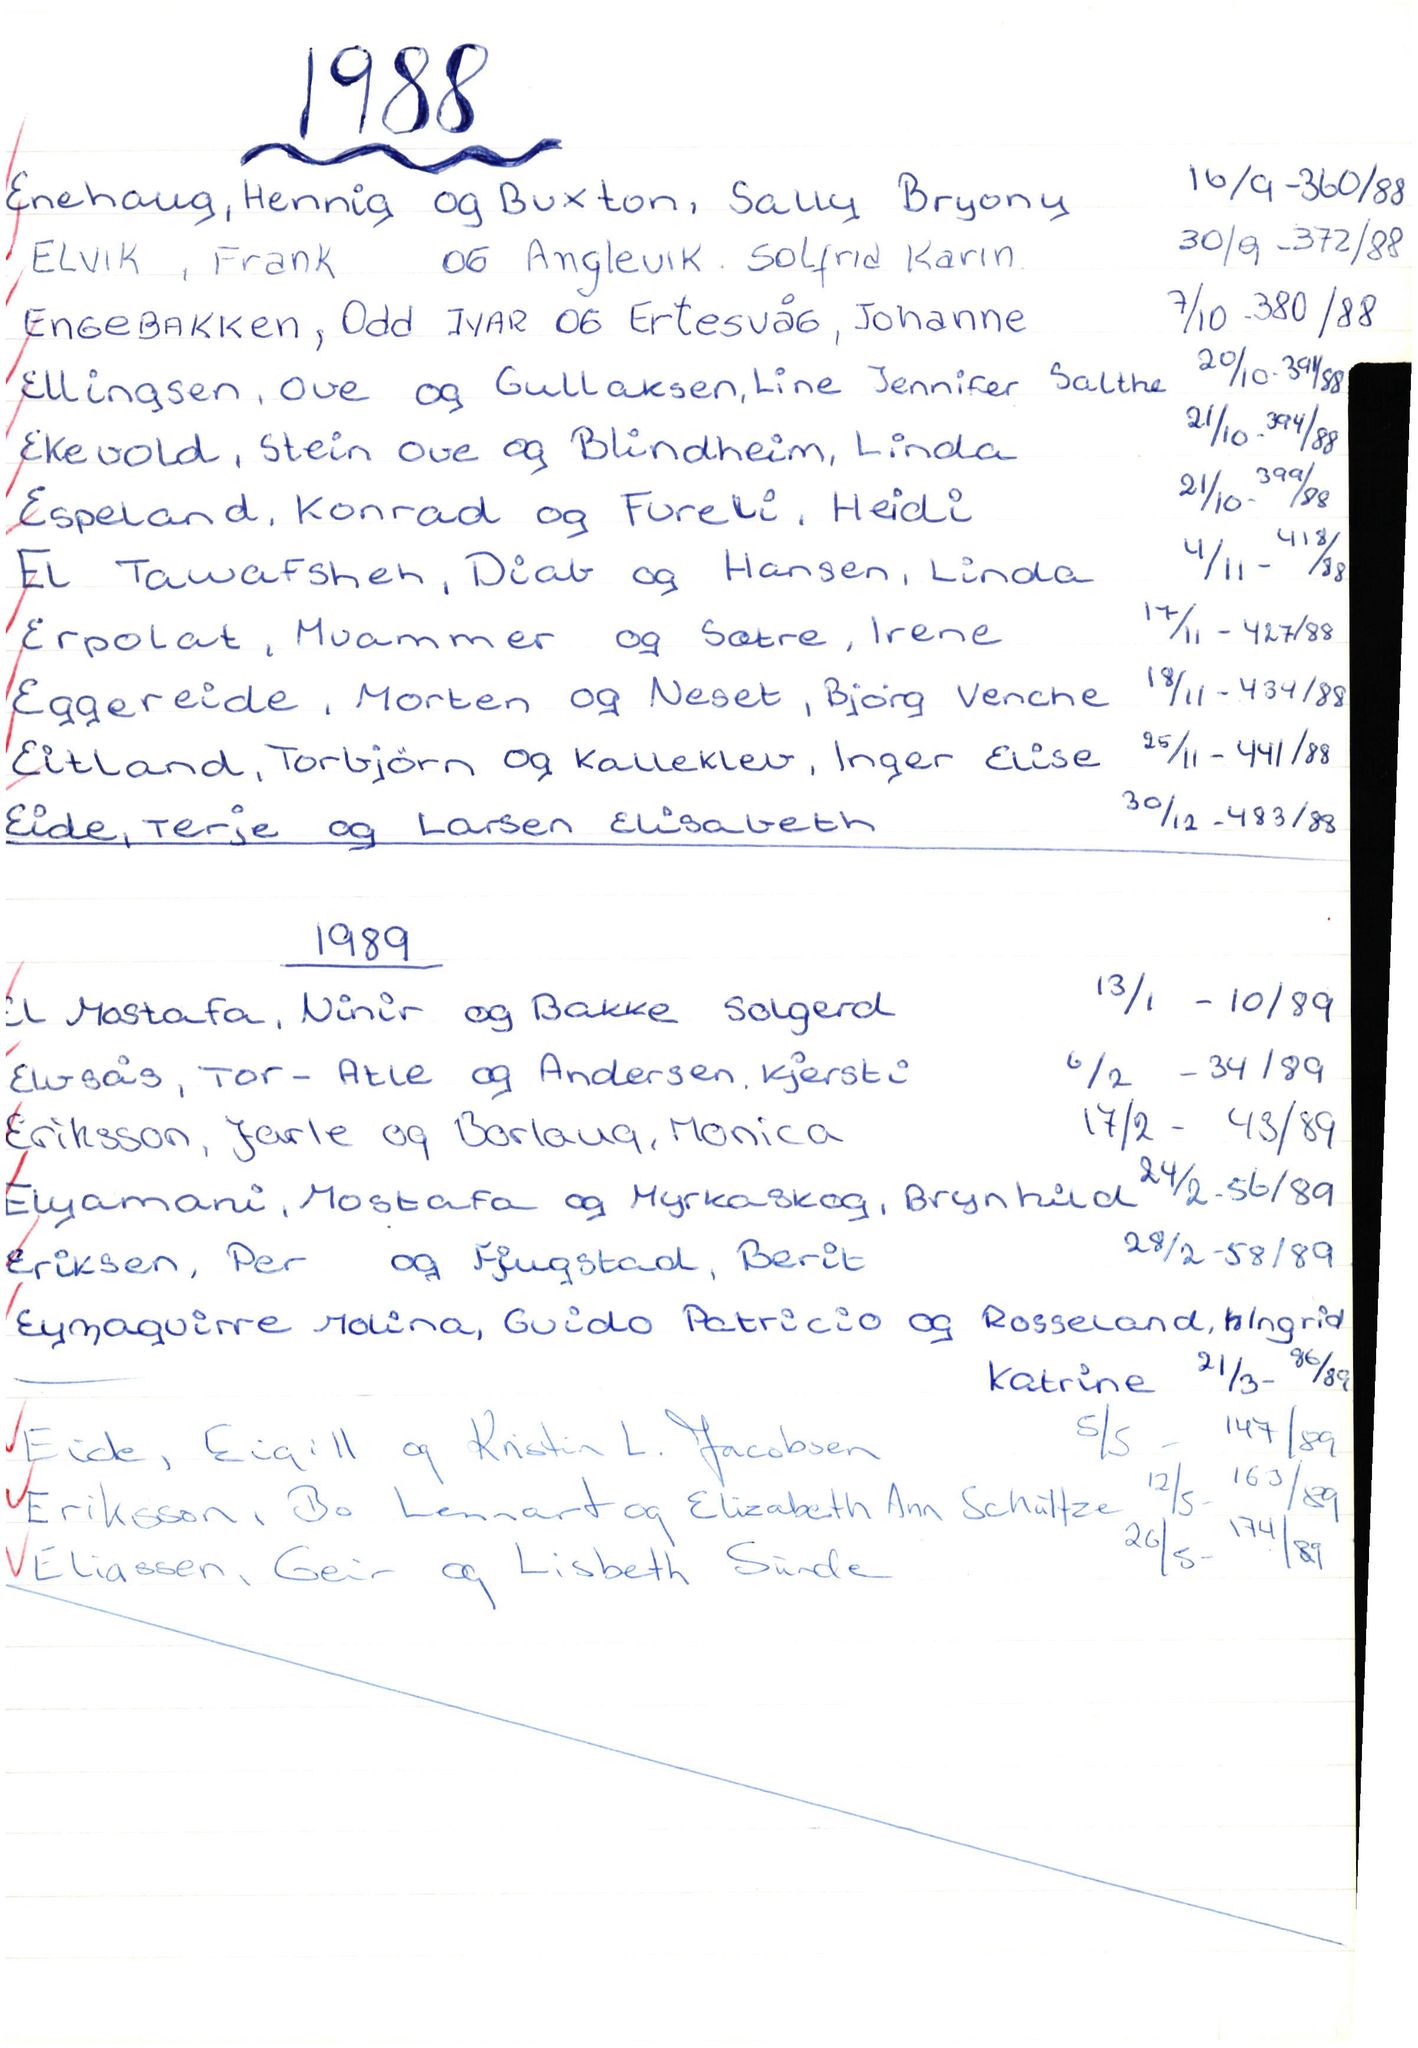 1988
Enehaug, Hennig og Buxton, Sally Bryony 16/9 - 360/88
ELVIK, Frank OG Anglevik. Solfrid Karin 30/9 - 372/88
ENGEBAKKEN, Odd IVAR OG Ertesvåg, Johanne 7/10 - 380/88
Ellingsen, Ove og Gullaksen, Line Jennifer Salthe 20/10 - 391/88
Ekevold, Stein Ove og Blindheim, Linda 21/10 - 394/88
Espeland, Konrad og Fureli, Heidi 21/10 - 399/88
El Tawafsheh, Diab og Hansen, Linda 4/11 - 418/88
Erpolat, Muammer og Sætre, Irene 17/11 - 427/88
Eggereide, Morten og Neset, Bjørg Venche 18/11 - 434/88
Eitland, Torbjörn og Kalleklev, Inger Elise 25/11 - 441/88
Eide, Terje og Larsen Elisabeth 30/12 - 483/88
1989
El Mostafa, Ninir og Bakke Solgerd 13/1 - 10/89
Elvsås, Tor-Atle og Andersen, Kjersti 6/2 - 34/89
Eriksson, Jarle og Borlaug, Monica 17/2 - 43/89
Elyamani, Mostafa og Myrkaskog, Brynhild 24/2 - 56/89
Eriksen, Per og Fjugstad, Berit 28/2 - 58/89
Eyzaguirre Molina, Guido Patricio og Rosseland, Ingrid
Katrine 21/3 - 86/89
Eide, Eigill og Kristin L. Jacobsen 5/5 - 147/89
Eriksson, Bo Lennart og Elizabeth Ann Schültze 12/5 - 163/89
Eliassen, Geir og Lisbeth Sunde 26/5 - 174/89